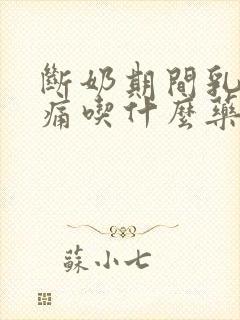 斷奶期間乳
痛喫什麼藥
蘇小七